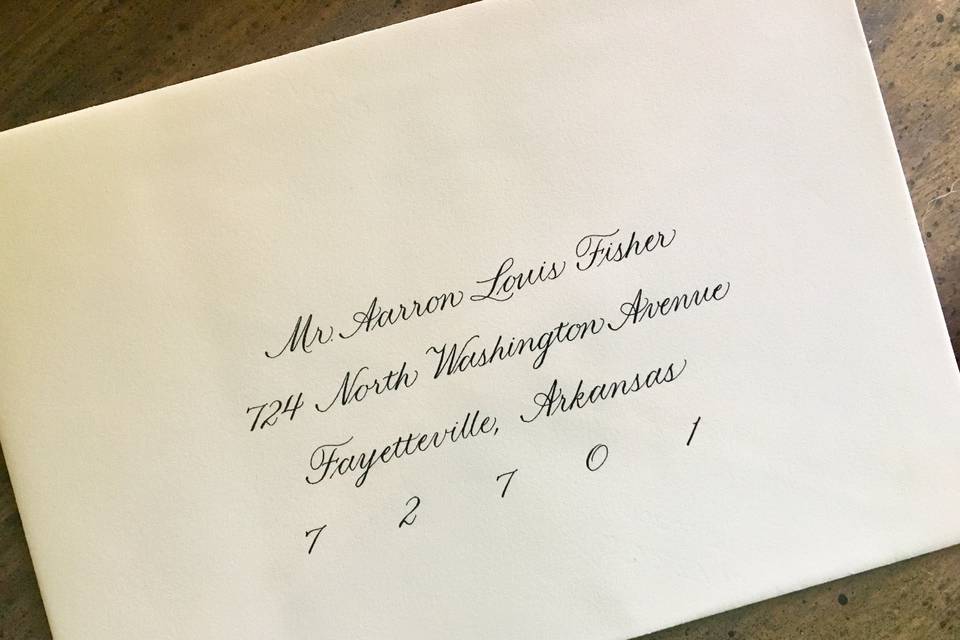 Mr. Aarron Louis Fisher
724 North Washington Avenue
Fayetteville, Arkansas
7 2 7 0 1